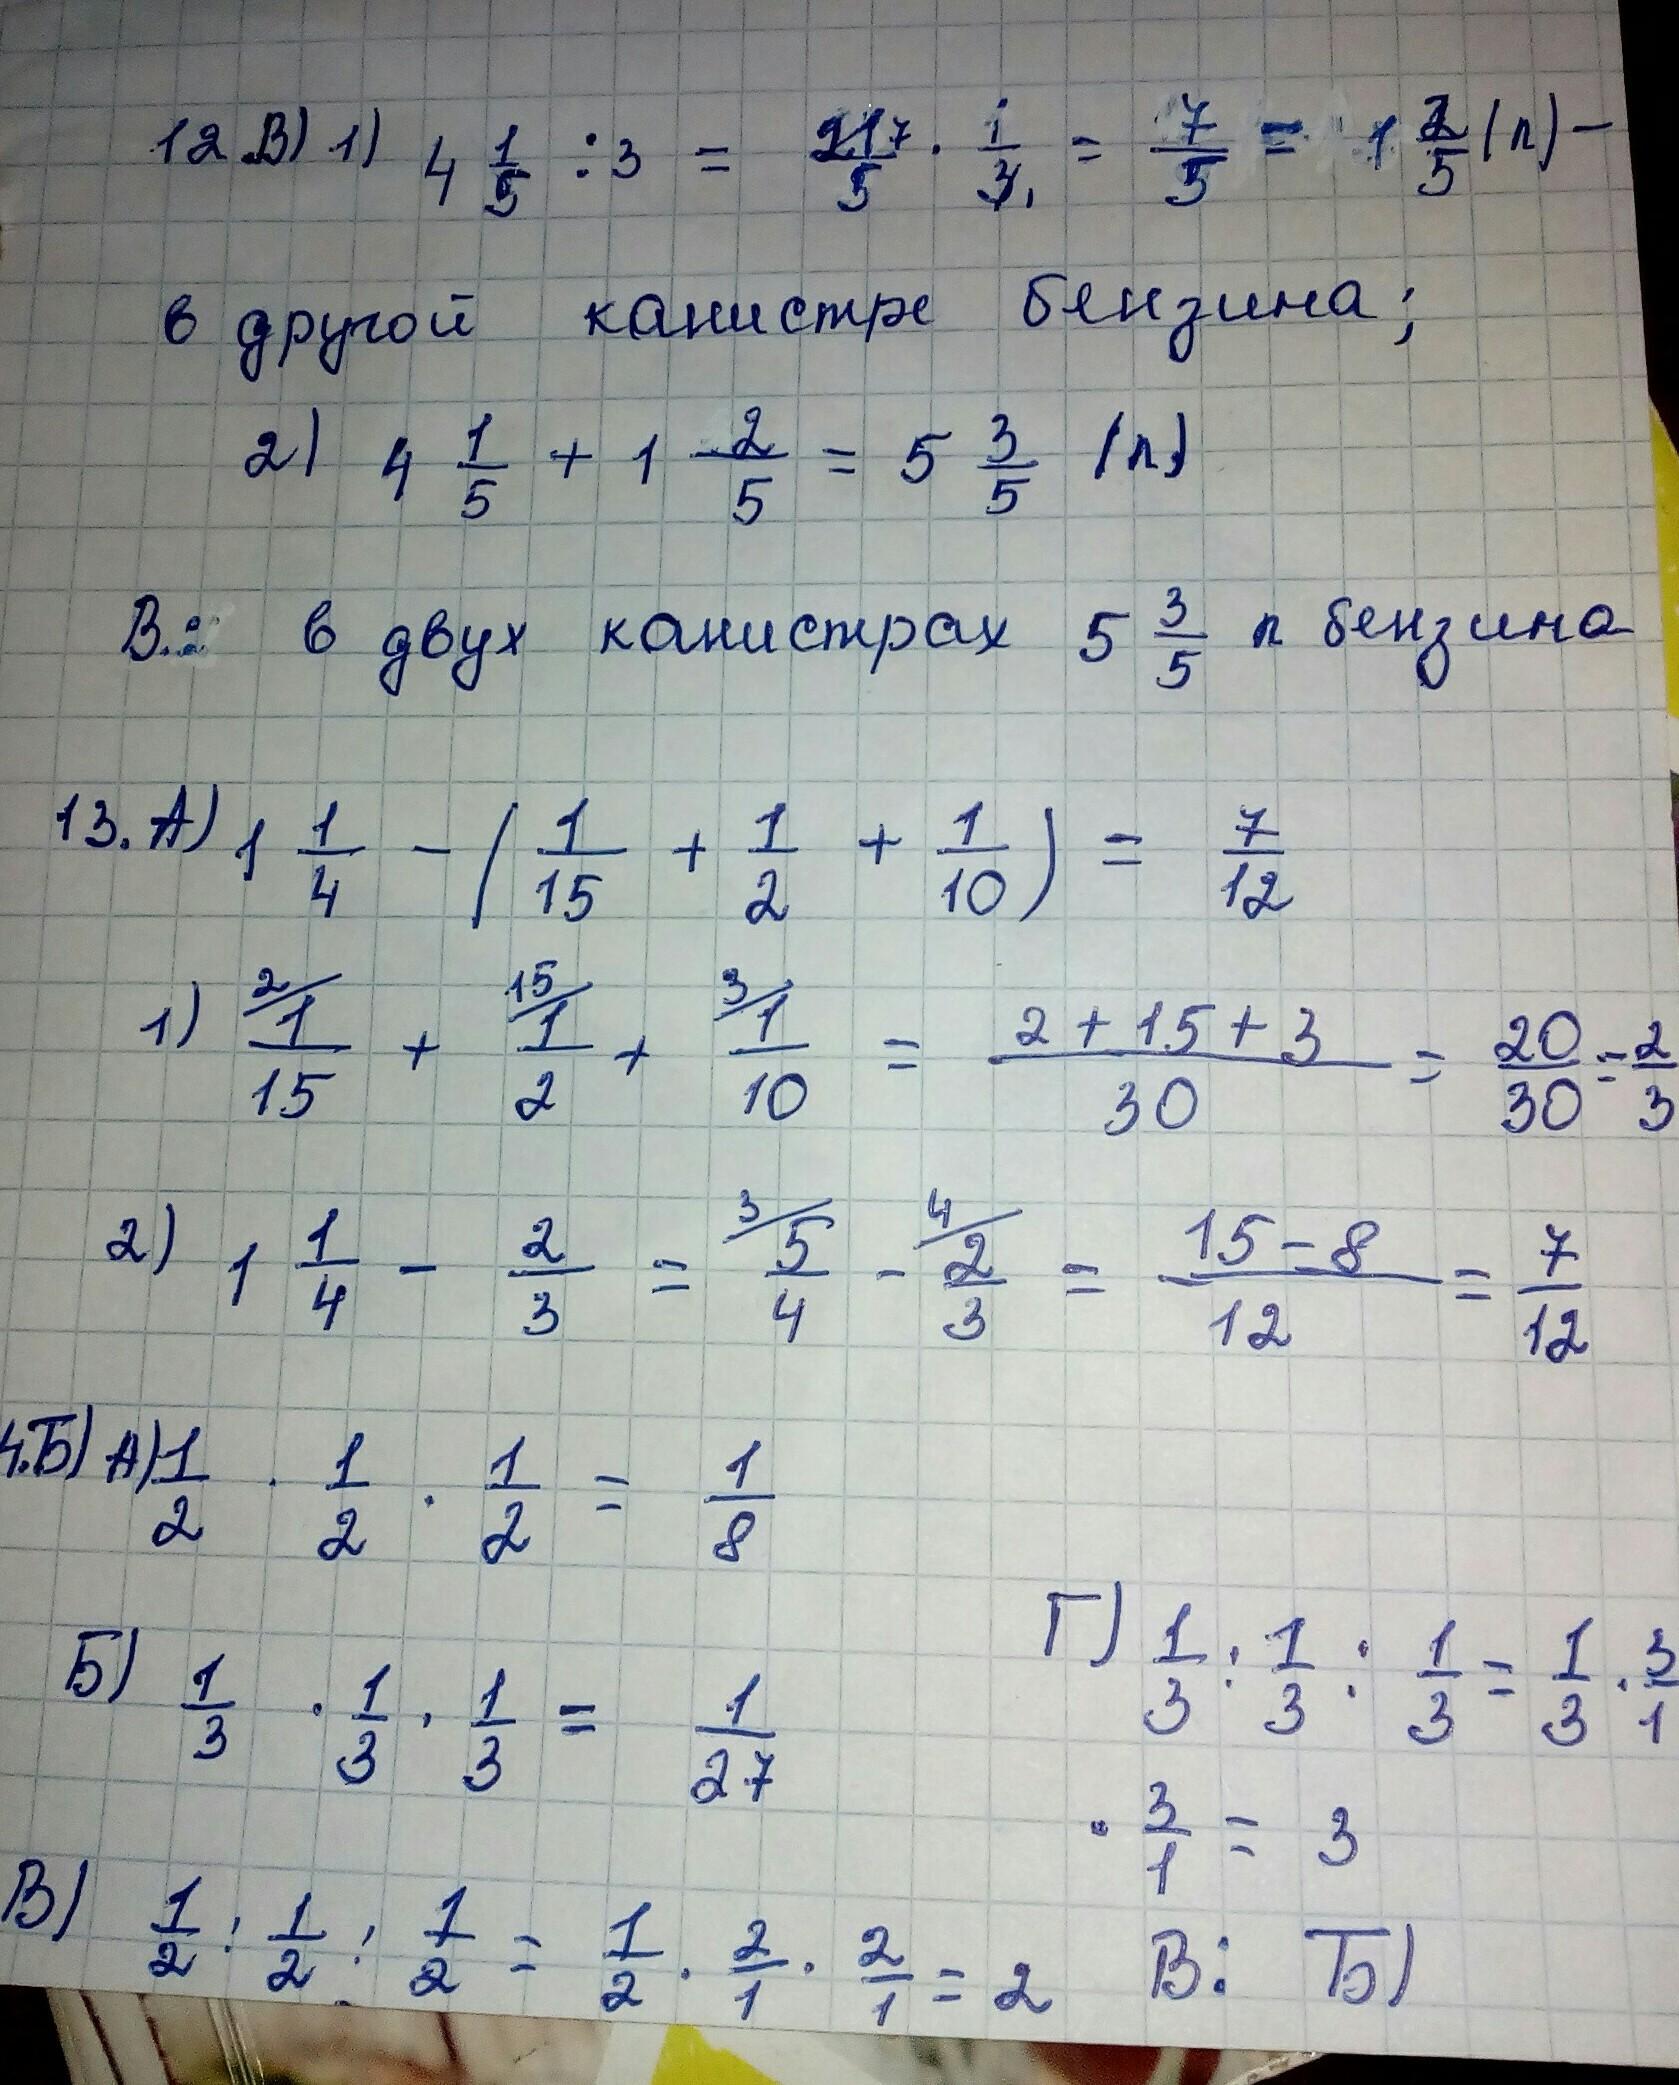 12.В) 1) 4 1/5 : 3 = 21 7/5 · 1/3 1 = 7/5 = 1 2/5 (л) –
в другой канистре бензина;
2) 4 1/5 + 1 2/5 = 5 3/5 (л)
В.: в двух канистрах 5 3/5 л бензина
13. А) 1 1/4 - (1/15 + 1/2 + 1/10) = 7/12
1) 2/ 1/15 + 15/ 1/2 + 3/ 1/10 = 2 + 15 + 3/30 = 20/30 = 2/3
2) 1 1/4 - 2/3 = 3/ 5/4 - 4/ 2/3 = 15 - 8/12 = 7/12
4.Б) А) 1/2 · 1/2 · 1/2 = 1/8
Б) 1/3 · 1/3 · 1/3 = 1/27
В) 1/2 : 1/2 : 1/2 = 1/2 · 2/1 · 2/1 = 2
Г) 1/3 : 1/3 : 1/3 = 1/3 · 3/1
· 3/1 = 3
В: Б)